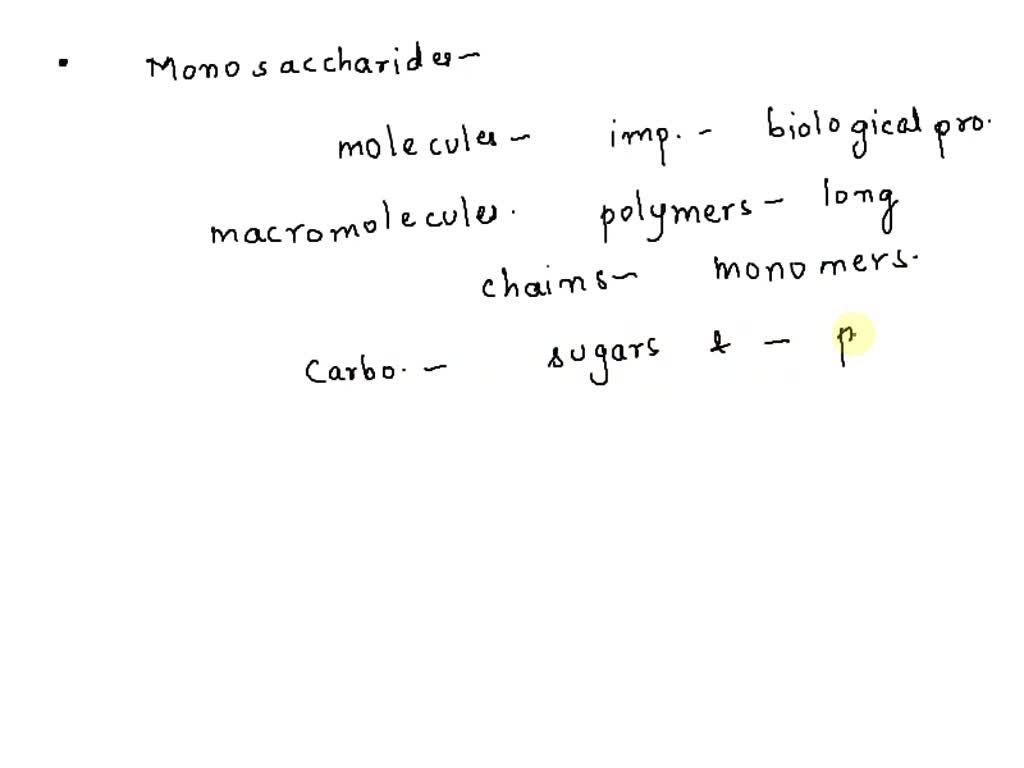 • Monosaccharides -
molecules - imp. - biological pro.
macromolecules. polymers - long
chains - monomers.
Carbo. - sugars & - p